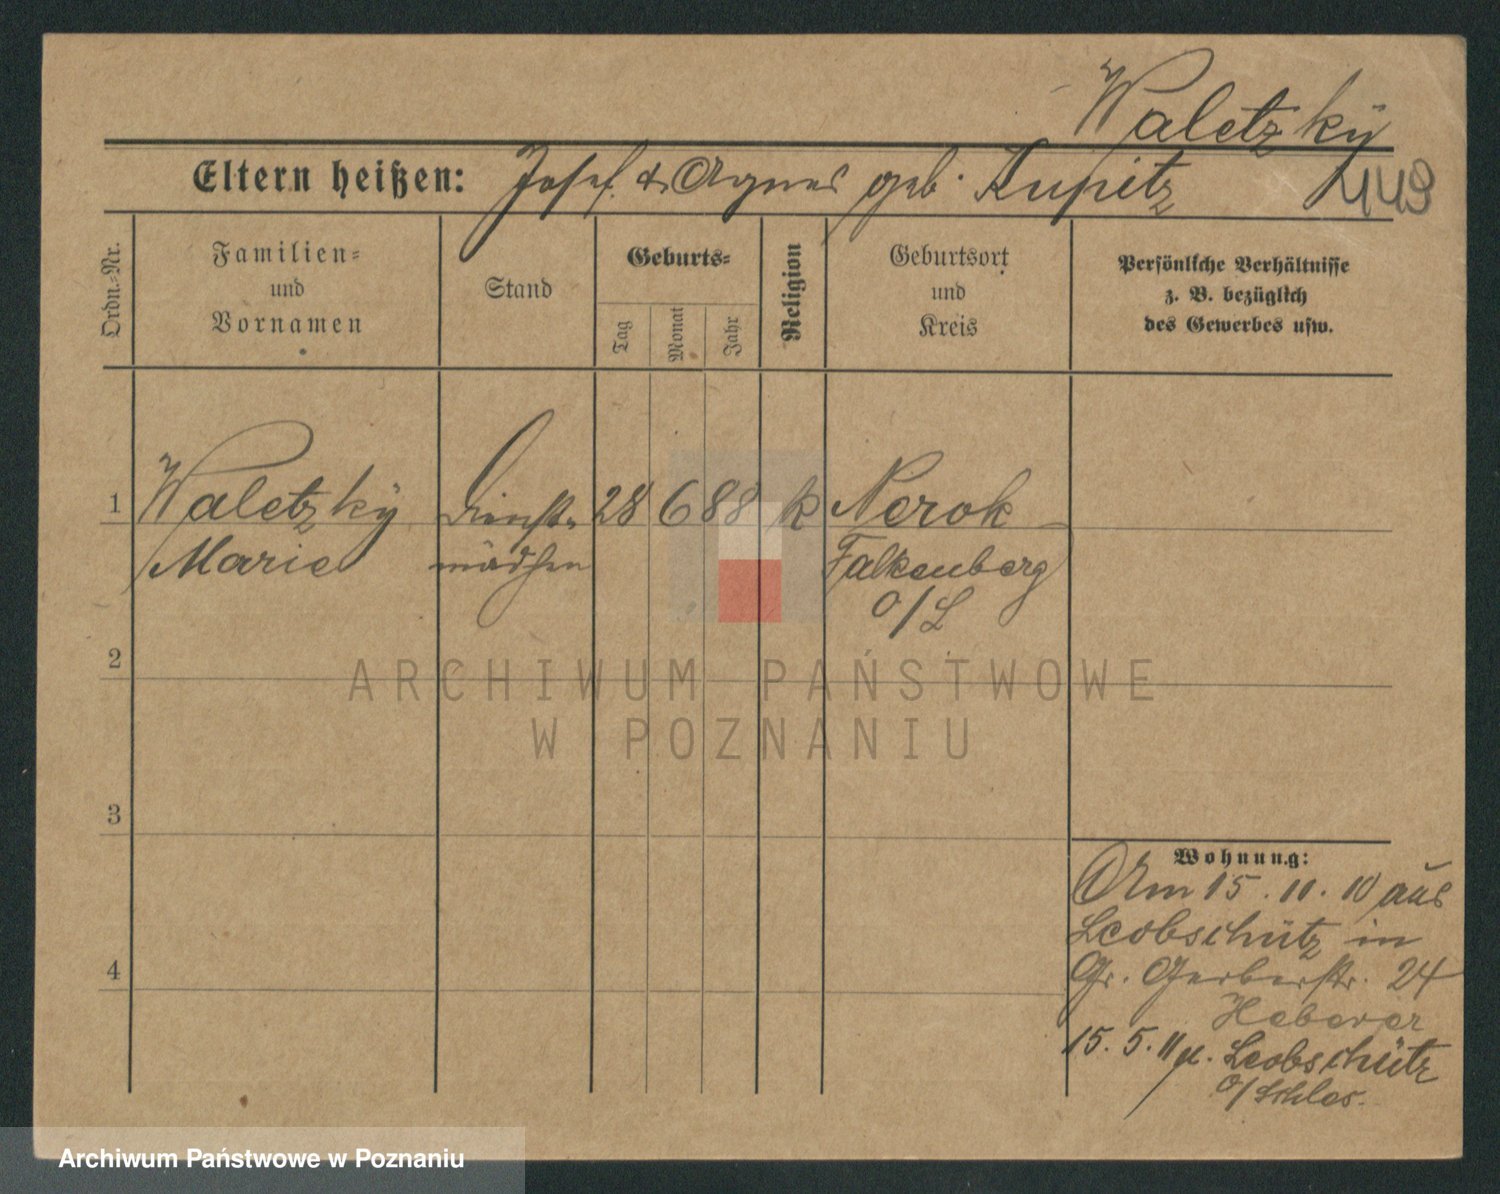 Waletzky
Eltern heißen: Josef & Agnes geb. Kupitz
449
Ordn.-Nr.
Familien-
und
Vornamen
Stand
Geburts-
Tag
Monat
Jahr
Religion
Geburtsort
und
Kreis
Persönliche Verhältnisse
z. B. bezüglich
des Gewerbes usw.
1 Waletzky Dienst- 28 6 88 k Nerok
Marie mädchen Falkenberg
O/L
2
ARCHIWUM PAŃSTWOWE
W POZNANIU
3
Wohnung:
Am 15.11.10 aus
Leobschütz in
4
Gr. Gerberstr. 24
15.5.11 n. Leobschütz
O/Schles.
Archiwum Państwowe w Poznaniu